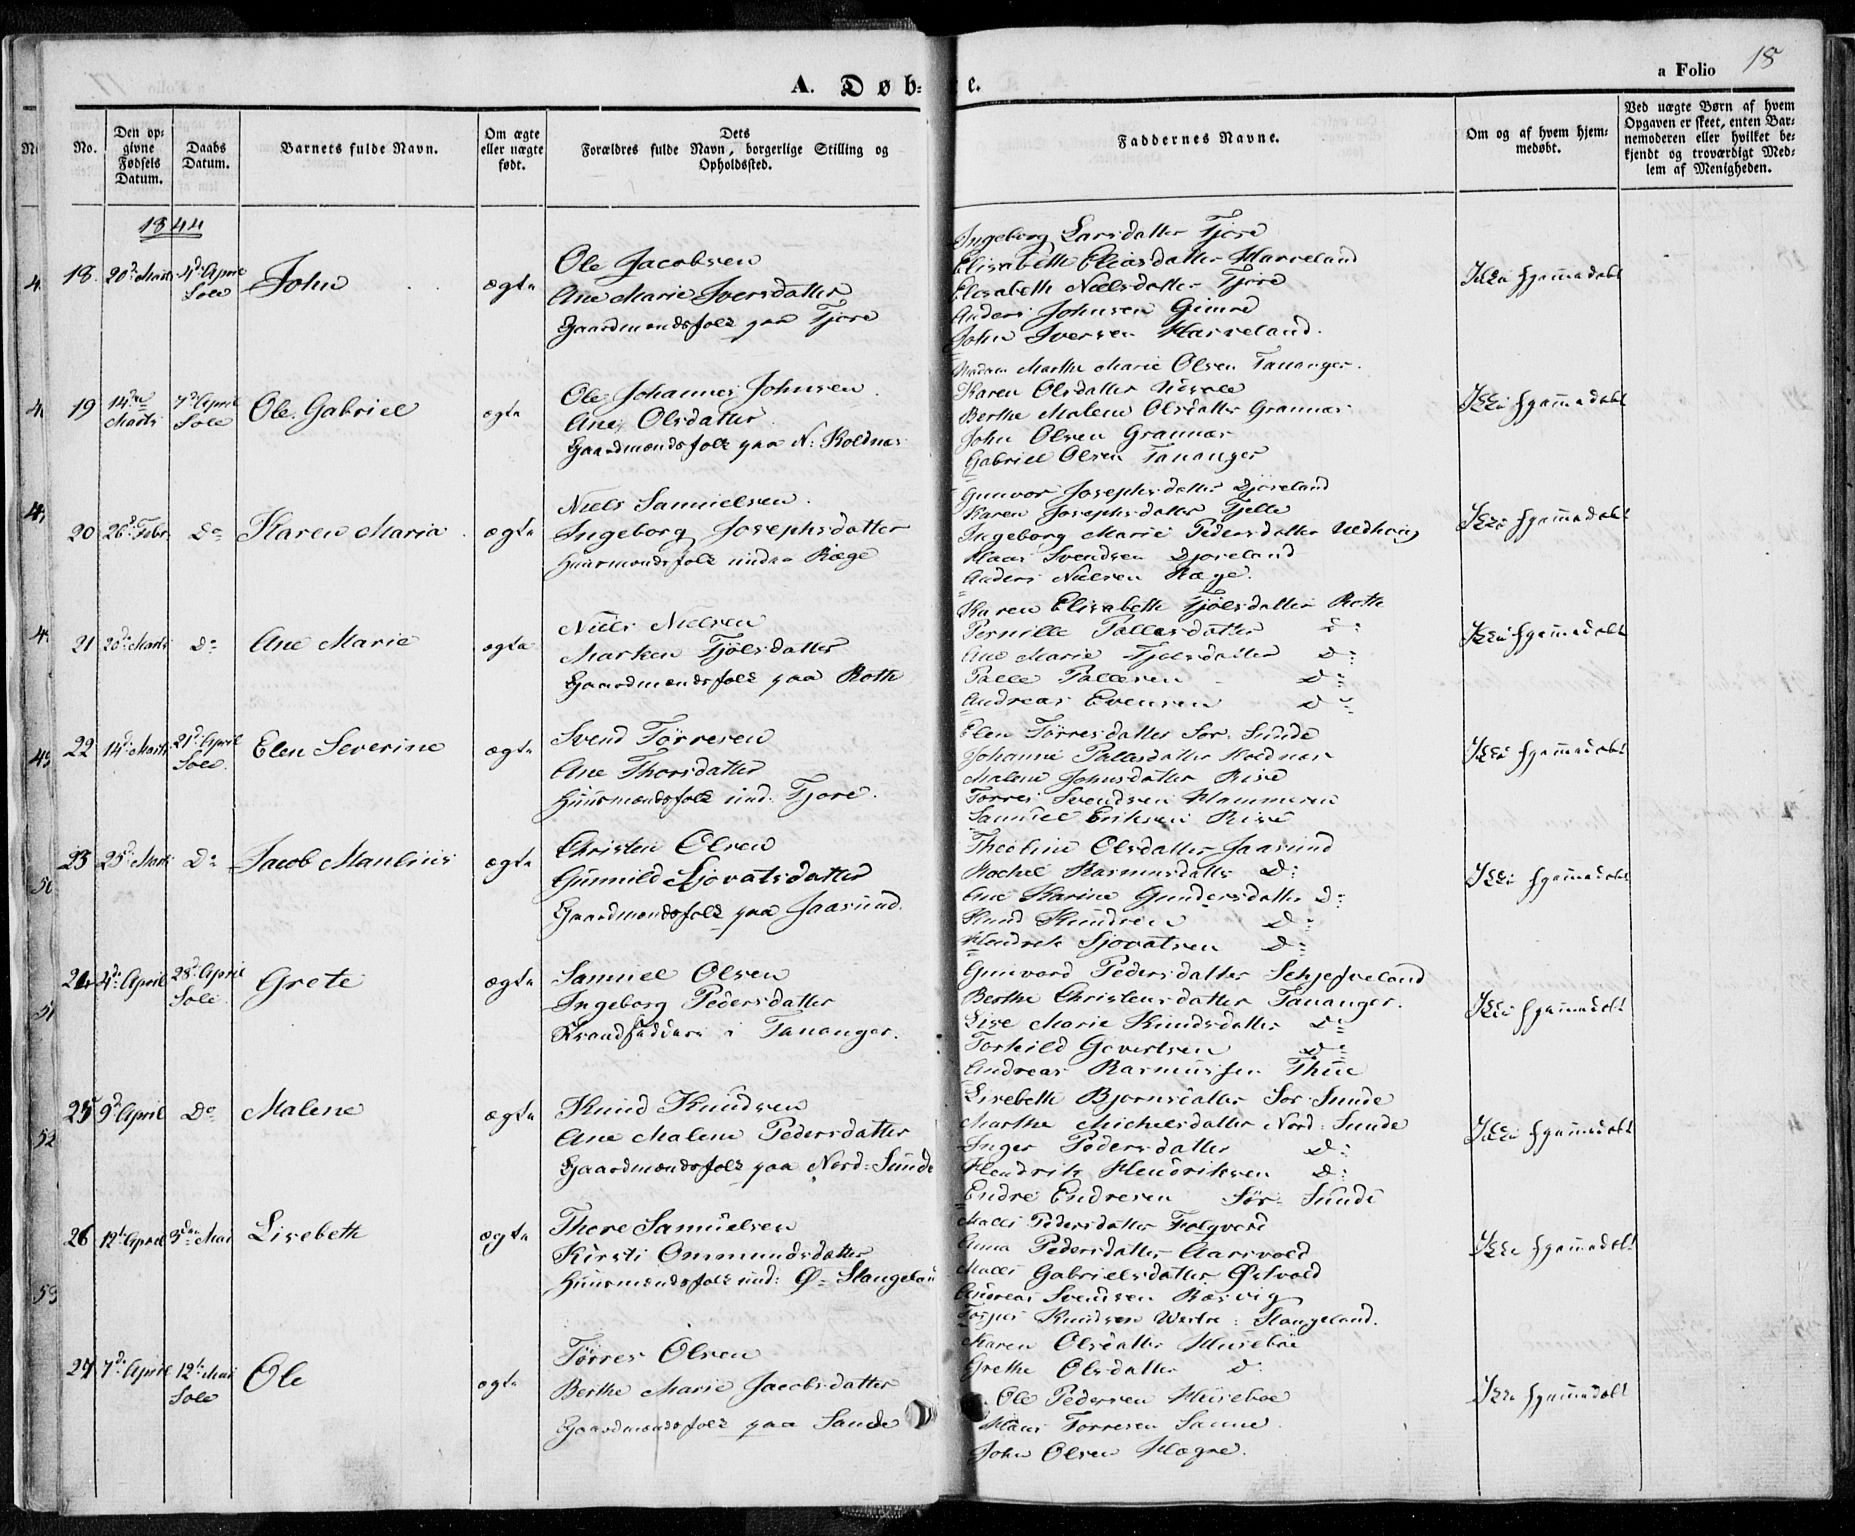 A. Døb= e.
a Folio 18
No.
Den op=
givne
Fødsels
Datum.
Daabs
Datum.
Barnets fulde Navn.
Om ægte
eller uægte
født.
Dets
Forældres fulde Navn, borgerlige Stilling og
Opholdssted.
Faddernes Navne.
Om og af hvem hjem=
medøbt.
Ved uægte Børn af hvem
Opgaven er skeet, enten Bar=
nemoderen eller hvilket be=
kjendt og troværdigt Med=
lem af Menigheden.
1844
18. 20d Marts 4d April
Sole
John
ægte
Ole Jacobsen
Ane Marie Iversdatter
Gaardmandsfolk paa Tjore
Ingeborg Larsdatter Tjore
Elisabeth Eliasdatter Harreland
Elisabeth Nielsdatter Tjore
Anders Johnsen Gimre
John Iversen Harreland.
Ikke hjemmedøbt
19 14de
Marts
7d April
Sole
Ole Gabriel
ægte
Ole Johannes Johnsen
Ane Olsdatter
Gaardmandsfolk paa N: Koldnæs
Madam Marthe Marie Olsen Tananger.
Karen Olsdatter
Berthe Malene Olsdatter Grannæs
John Olsen Grannæs
Gabriel Olsen Tananger
Ikke hjemmedøbt
20 26d Febr Do Karen Maria ægte
Niels Samuelsen.
Ingeborg Josephsdatter
Huusmandsfolk under Ræge
Gunvor Josephsdatter Djoreland
Karen Josephsdatter Tjelle
Ingeborg Marie Pedersdatter
Klaas Svendsen Djoreland
Anders Nielsen Ræge.
Ikke hjemmedøbt
21 20d Marts Do Ane Marie ægte
Niels Nielsen
Marken Tjølsdatter
Gaardmandsfolk paa Roth
Karen Elisabeth Tjølsdatter Roth
Pernille Pallesdatter do
Ane Marie Tjølsdatter Do
Palle Pallesen Do
Andreas Evensen Do
Ikke hjemmedøbt
22 14d Marts 21d April
Sole.
Elen Severine ægte
Svend Tørresen
Ane Thorsdatter
Huusmandsfolk und. Tjore.
Elen Tørresdatter Sør: Sunde
Johanne Pallesdatter Koldnæs
Malene Johnsdatter Rise
Torres Svendsen Hammeren
Samuel Eriksen Risa
Ikke hjemmedøbt
23 25d Marts Do Jacob Maulinus ægte
Christen Olsen
Gunnild Sjovatsdatter
Gaardmandsfolk paa Jaasund.
Theoline Olsdatter Jaasund
Rachel Rasmusdatter Do
Ane Karine Gundersdatter Do
Knud Knudsen Do
Hendrik Sjovatsen Do
Ikke hjemmedøbt
24 4d April 28d April
Sole.
Grete ægte
Samuel Olsen
Ingeborg Pedersdatter
Strandsiddere i Tananger.
Gunvord Pedersdatter Schjefveland
Berthe Christensdatter Tananger.
Lise Marie Knudsdatter Do
Torkild Govertsen Do
Andreas Rasmussen Thue
Ikke hjemmedøbt
25 9d April Do Malene ægte
Knud Knudsen
Ane Malene Pedersdatter
Gaardmandsfolk paa Nord=Sunde
Lisebeth Bjornsdatter Sør Sunde
Marthe Michelsdatter Nord: Sunde
Inger Pedersdatter Do
Hendrik Hendriksen Do
Endre Endresen Sør: Sunde
Ikke hjemmedøbt
26 12t April 5te Mai Lisebeth ægte
Thore Samuelsen
Kirsti Ommundsdatter
Huusmandsfolk und: Ø= Stangeland
Malli Pedersdatter Folqvord
Anna Pedersdatter Aarsvold
Malli Gabrielsdatter Østvold
Andreas Svendsen Risvig
Knudsen Westre: Stangeland.
Ikke hjemmedøbt
27 7d April 12t Mai
Sole
Ole ægte
Tørres Olsen
Berthe Marie Jacobsdatter
Gaardmandsfolk paa Sande
Karen Olsdatter Huseboe
Grethe Olsdatter do
Ole Pedersen Huseboe
Hans Torresen Sanne
John Olsen Hagre.
Ikke hjemmedøbt